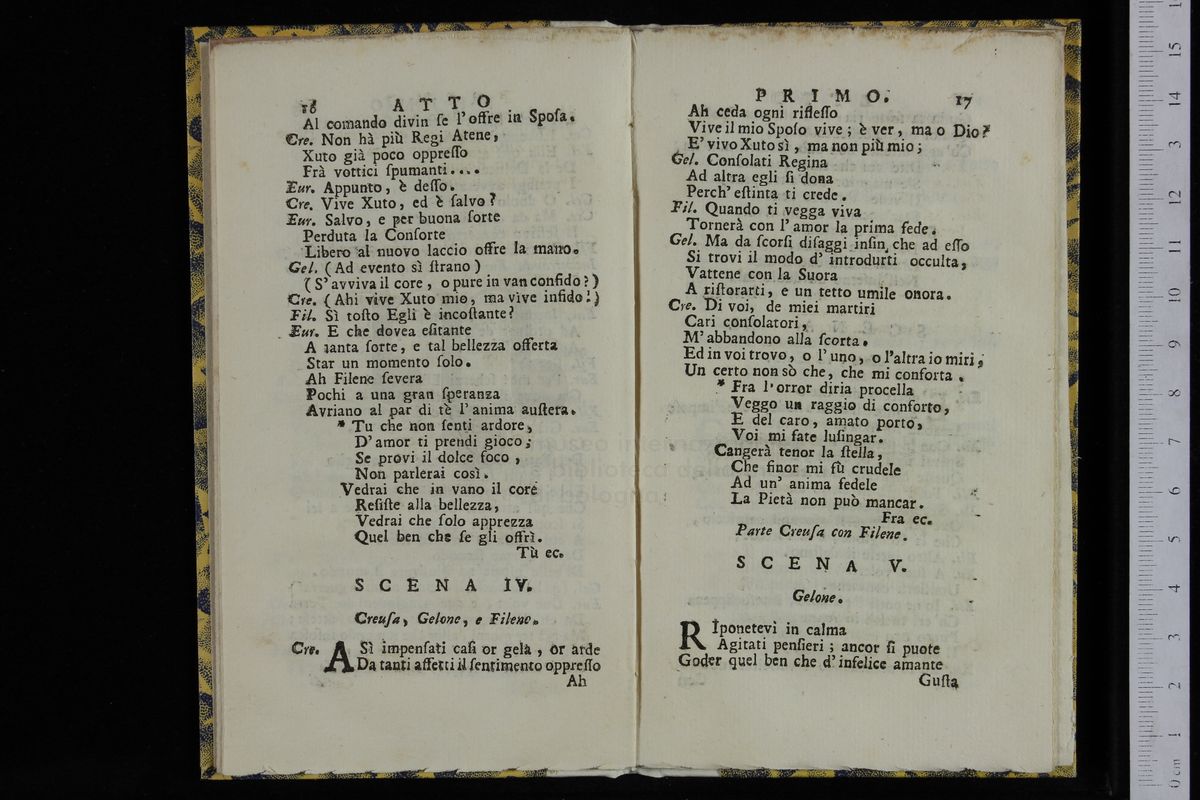 16 ATTO
Al comando divin ſe l'offre in Spoſa.
Cre. Non hà più Regi Atene,
Xuto già poco oppreſſo
Frà vottici ſpumanti....
Eur. Appunto, è deſſo.
Cre. Vive Xuto, ed è ſalvo?
Eur. Salvo, e per buona ſorte
Perduta la Conſorte
Libero al nuovo laccio offre la mano.
Gel. (Ad evento sì ſtrano)
(S'avviva il core, o pure in van confido?)
Cre. (Ahi vive Xuto mio, ma vive infido!)
Fil. Sì toſto Egli è incoſtante?
Eur. E che dovea eſitante
A tanta ſorte, e tal bellezza offerta
Star un momento ſolo.
Ah Filene ſevera
Pochi a una gran ſperanza
Avriano al par di tè l'anima auſtera.
* Tu che non ſenti ardore,
D'amor ti prendi gioco;
Se provi il dolce foco,
Non parlerai così.
Vedrai che in vano il core
Reſiſte alla bellezza,
Vedrai che ſolo apprezza
Quel ben che ſe gli offrì.
Tù ec.
SCENA IV.
Creuſa, Gelone, e Filene.
Cre. A Sì impenſati caſi or gela, or arde
Da tanti affetti il ſentimento oppreſſo
Ah
PRIMO. 17
Ah ceda ogni rifleſſo
Vive il mio Spoſo vive; è ver, ma o Dio?
E' vivo Xuto sì, ma non più mio;
Gel. Conſolati Regina
Ad altra egli ſi dona
Perch' eſtinta ti crede.
Fil. Quando ti vegga viva
Tornerà con l'amor la prima fede.
Gel. Ma da ſcorſi diſaggi inſin che ad eſſo
Si trovi il modo d'introdurti occulta,
Vattene con la Suora
A riſtorarti, e un tetto umile onora.
Cre. Di voi, de miei martiri
Cari conſolatori,
M'abbandono alla ſcorta.
Ed in voi trovo, o l'uno, o l'altra io miri,
Un certo non sò che, che mi conforta.
* Fra l'orror diria procella
Veggo un raggio di conforto,
E del caro, amato porto,
Voi mi fate luſingar.
Cangerà tenor la ſtella,
Che finor mi fù crudele
Ad un' anima fedele
La Pietà non può mancar.
Fra ec.
Parte Creuſa con Filene.
SCENA V.
Gelone.
RIponetevi in calma
Agitati penſieri; ancor ſi puote
Goder quel ben che d'infelice amante
Guſta